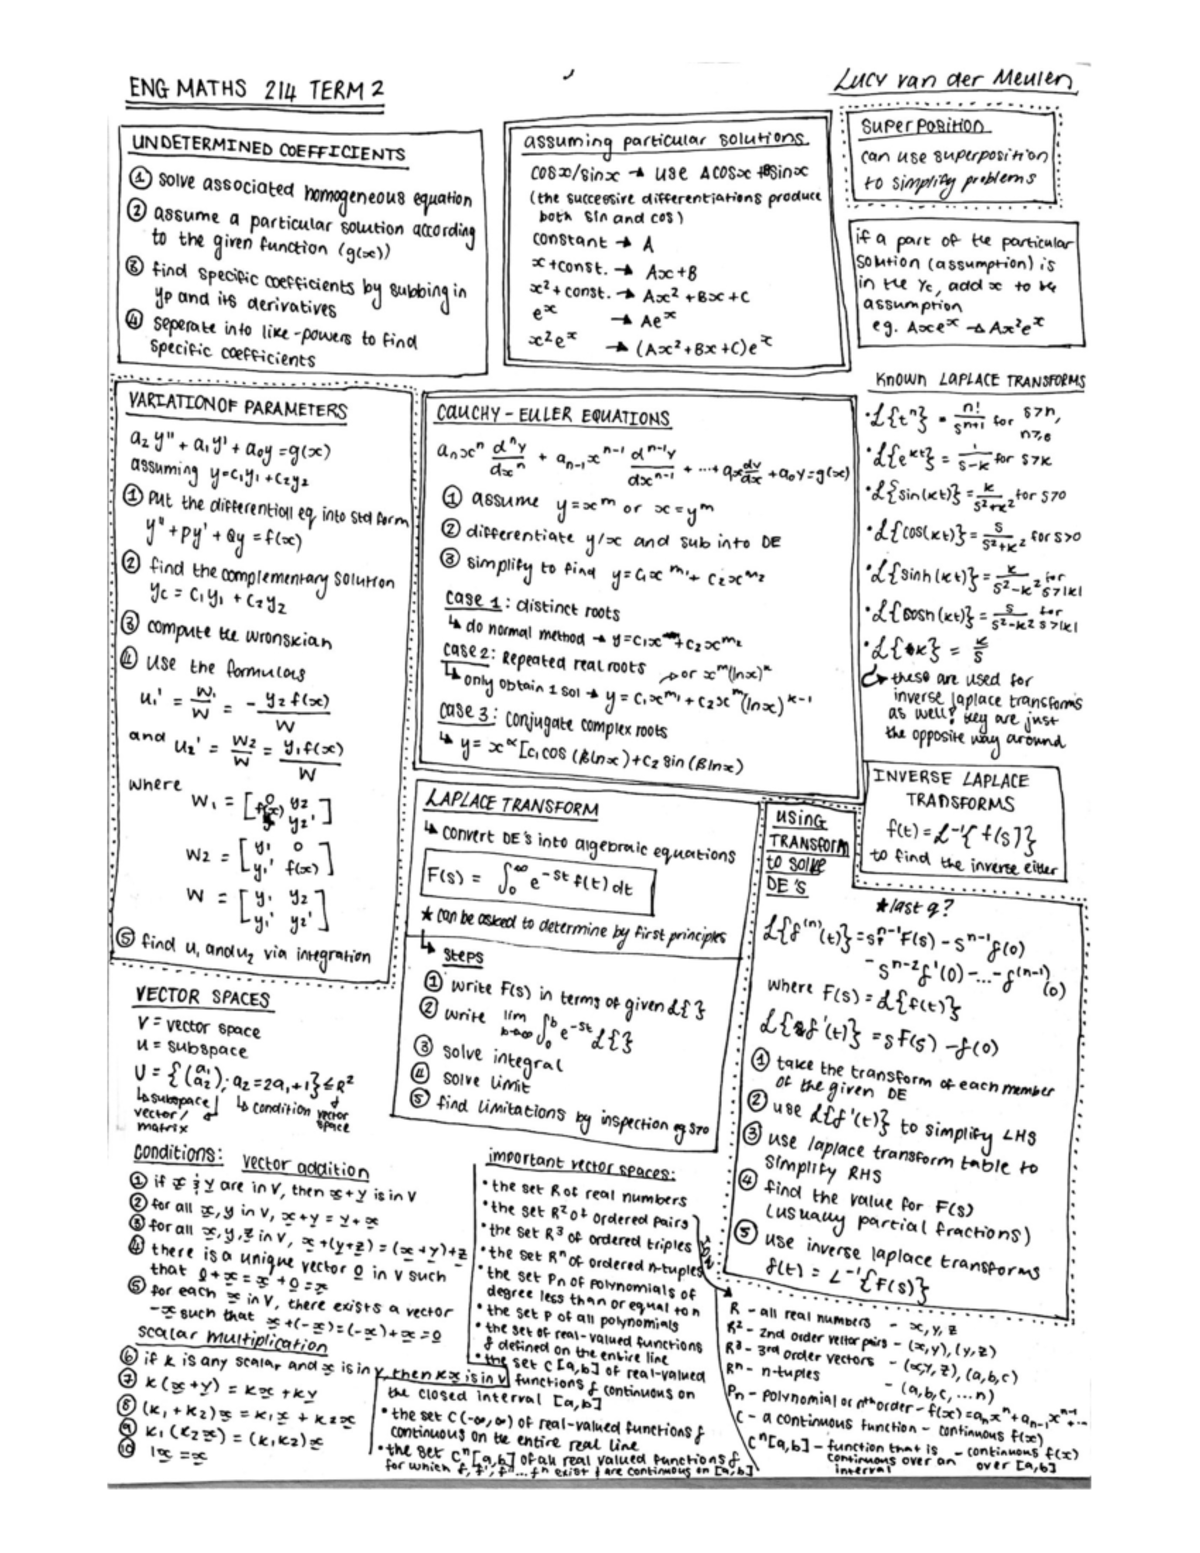 ENG MATHS 214 TERM 2
Lucy van der Meulen
UNDETERMINED COEFFICIENTS
① solve associated homogeneous equation
② assume a particular solution according
to the given function (g(x))
③ find specific coefficients by subbing in
yp and its derivatives
④ seperate into like-powers to find
specific coefficients
assuming particular solutions
cosx/sinx → use Acosx + Bsinx
(the successive differentiations produce
both sin and cos)
constant → A
x+const. → Ax+B
x²+const. → Ax²+Bx+C
eˣ → Aeˣ
x²eˣ → (Ax²+Bx+C)eˣ
SUPERPOSITION
can use superposition
to simplify problems
if a part of the particular
solution (assumption) is
in the yc, add x to the
assumption
eg. Axeˣ → Ax²eˣ
VARIATION OF PARAMETERS
a₂y" + a₁y' + a₀y = g(x)
assuming y=c₁y₁+c₂y₂
① Put the differentiall eq into std form
y" + Py' + Qy = f(x)
② find the complementary solution
yc = c₁y₁ + c₂y₂
③ compute the wronskian
④ use the formulas
u₁' = W₁/W = - y₂f(x)/W
and u₂' = W₂/W = y₁f(x)/W
where
W₁ = [0 y₂
f(x) y₂']
W₂ = [y₁ 0
y₁' f(x)]
W = [y₁ y₂
y₁' y₂']
⑤ find u₁ and u₂ via integration
CAUCHY-EULER EQUATIONS
aₙxⁿ dⁿy/dxⁿ + aₙ₋₁xⁿ⁻¹ dⁿ⁻¹y/dxⁿ⁻¹ + ...+ a₁x dy/dx + a₀y = g(x)
① assume y=xᵐ or x=yᵐ
② differentiate y/x and sub into DE
③ simplify to find y=c₁x^m₁ + c₂x^m₂
case 1: distinct roots
↳ do normal method → y=c₁x^m₁+c₂x^m₂
case 2: Repeated real roots → or xᵐ(lnx)ᵏ
↳ only obtain 1 sol → y = c₁x^m₁ + c₂xᵐ(lnx)ᵏ⁻¹
case 3: conjugate complex roots
↳ y = x^α[c₁cos(βlnx)+c₂sin(βlnx)
KNOWN LAPLACE TRANSFORMS
• ℒ{tⁿ} = n!/sⁿ⁺¹ for s>n, n>,0
• ℒ{eᵏᵗ} = 1/s-k for s>k
• ℒ{sin(kt)} = k/s²+k² for s>0
• ℒ{cos(kt)} = s/s²+k² for s>0
• ℒ{sinh(kt)} = k/s²-k² for s>|k|
• ℒ{cosh(kt)} = s/s²-k² for s>|k|
• ℒ{k} = k/s
↳ these are used for
inverse laplace transforms
as well! they are just
the opposite way around
INVERSE LAPLACE
TRANSFORMS
f(t) = ℒ⁻¹{f(s)}
to find the inverse either
LAPLACE TRANSFORM
↳ convert DE's into algebraic equations
F(s) = ∫₀^∞ e⁻ˢᵗ f(t) dt
★ can be asked to determine by first principles
↳ Steps
① write F(s) in terms of given ℒ{ }
② write lim b→∞ ∫₀ᵇ e⁻ˢᵗ ℒ{ }
③ solve integral
④ solve limit
⑤ find limitations by inspection eg s>0
USING
TRANSFORM
to solve
DE's
★ last q?
ℒ{f⁽ⁿ⁾(t)} = sⁿF(s) - sⁿ⁻¹f(0)
- sⁿ⁻²f'(0) - ... - f⁽ⁿ⁻¹⁾(0)
where F(s) = ℒ{f(t)}
ℒ{f'(t)} = sF(s) - f(0)
① take the transform of each member
of the given DE
② use ℒ{f'(t)} to simplify LHS
③ use laplace transform table to
simplify RHS
④ find the value for F(s)
(usually partial fractions)
⑤ use inverse laplace transforms
f(t) = L⁻¹{F(s)}
VECTOR SPACES
V = vector space
U = subspace
U = {(a₁ a₂); a₂=2a₁+1} ≤ R²
↳ subspace
vector/
matrix
↳ condition
vector
space
conditions: vector addition
① if x & y are in V, then x+y is in V
② for all x, y in V, x+y = y+x
③ for all x,y,z in V, x+(y+z) = (x+y)+z
④ there is a unique vector 0 in V such
that 0+x = x+0 = x
⑤ for each x in V, there exists a vector
-x such that x+(-x) = (-x)+x = 0
scalar multiplication
⑥ if k is any scalar and x is in V, then kx is in V
⑦ k(x+y) = kx + ky
⑧ (k₁+k₂)x = k₁x + k₂x
⑨ k₁(k₂x) = (k₁k₂)x
⑩ 1x = x
important vector spaces:
• the set R of real numbers
• the set R² of ordered pairs
• the set R³ of ordered triples
• the set Rⁿ of ordered n-tuples
• the set Pn of polynomials of
degree less than or equal to n
• the set P of all polynomials
• the set of real-valued functions
f defined on the entire line
• the set C[a,b] of real-valued
functions f continuous on
the closed interval [a,b]
• the set C(-∞,∞) of real-valued functions f
continuous on the entire real line
• the set Cⁿ[a,b] of all real valued functions f
for which f, f', f"... fⁿ exist & are continuous on [a,b]
R - all real numbers - x, y, z
R² - 2nd order vector pairs - (x,y), (y,z)
R³ - 3rd order vectors - (x,y,z), (a,b,c)
Rⁿ - n-tuples - (a,b,c,...n)
Pn - polynomial or nth order - f(x)=aₙxⁿ+aₙ₋₁xⁿ⁻¹+...
C - a continuous function - continuous f(x)
Cⁿ[a,b] - function that is - continuous f(x)
continuous over an over [a,b]
interval